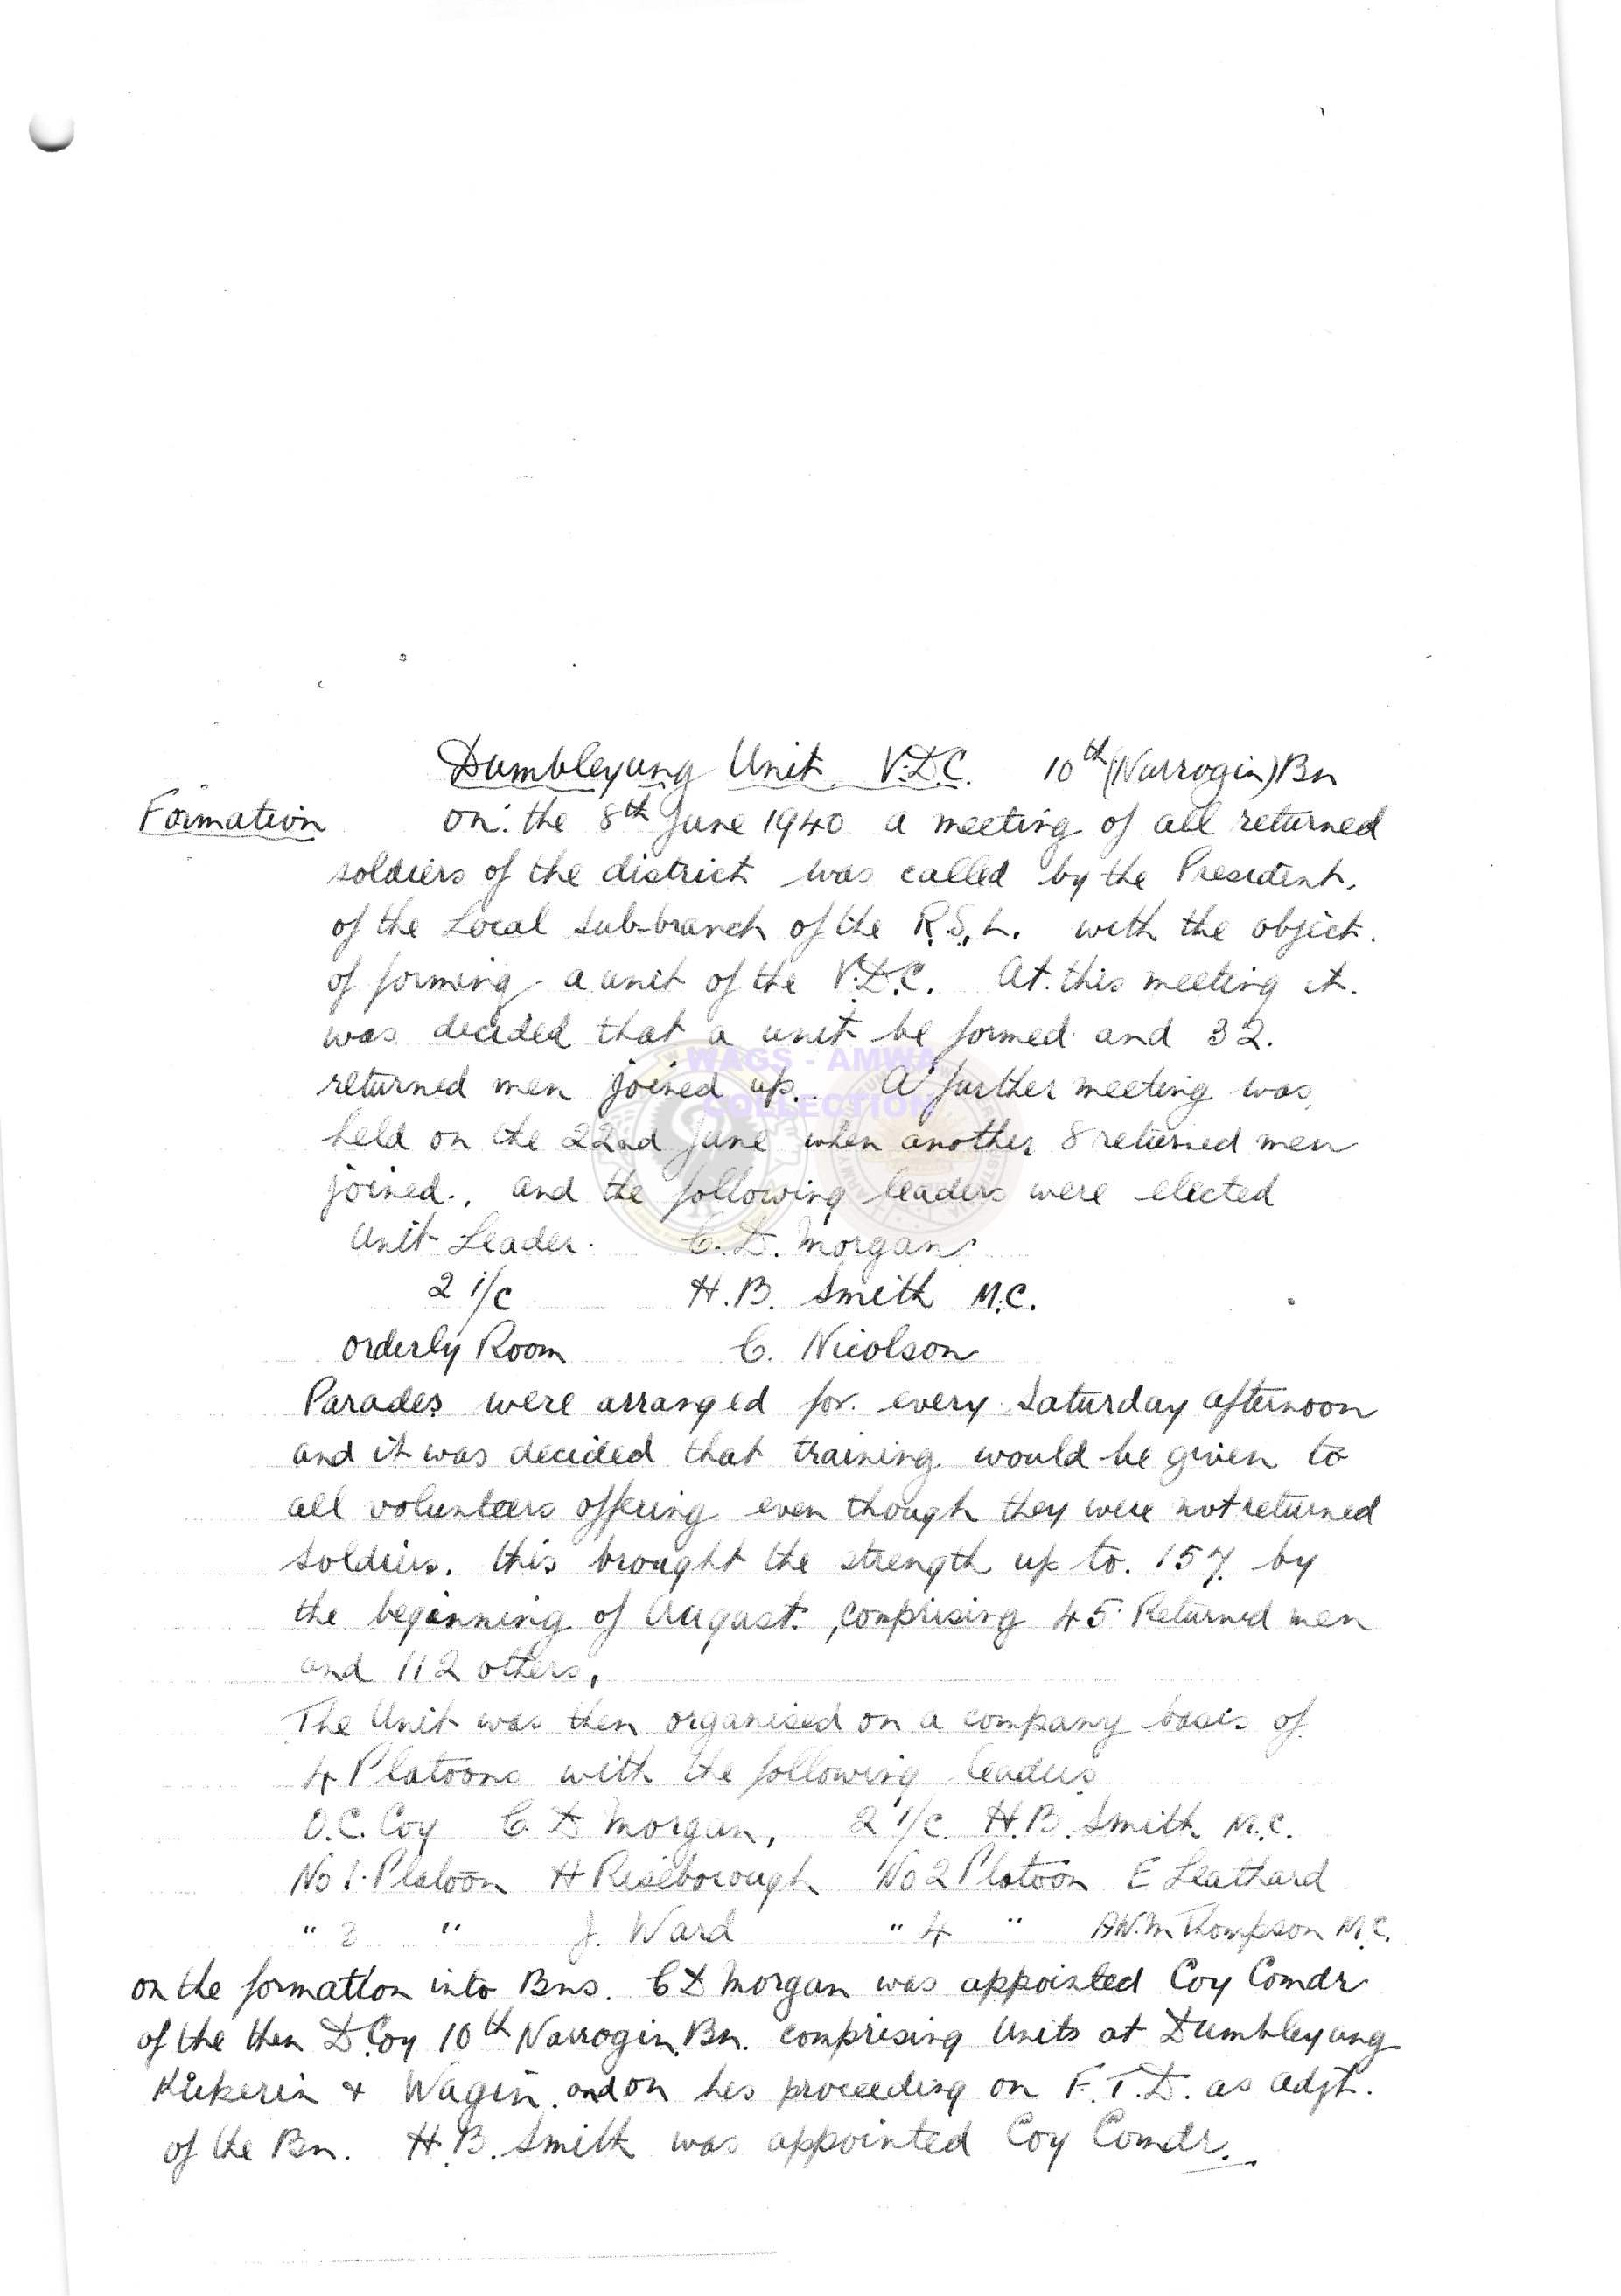 Dumbleyung Unit. V.D.C. 10th (Narrogin) Bn
Formation on the 8th June 1940 a meeting of all returned
soldiers of the district was called by the President.
of the Local sub-branch of the R.S.L. with the object.
of forming a unit of the V.D.C. At this meeting it.
was decided that a unit be formed and 32.
WAGS - AMWA
returned men joined up. A further meeting was
COLLECTION
held on the 22nd June when another 8 returned men
joined., and the following leaders were elected
Unit Leader. C. D. Morgan
2 i/c H.B. Smith M.C.
Orderly Room C. Nicolson
Parades were arranged for every Saturday afternoon
and it was decided that training would be given to
all volunteers offering even though they were not returned
soldiers. this brought the strength up to. 157 by
the beginning of August, comprising 45 Returned men
and 112 others,
The Unit was then organised on a company basis of
4 Platoons with the following leaders
O.C. Coy C. D Morgan, 2 i/c. H.B. Smith M.C.
No 1. Platoon H Riseborough No 2 Platoon E Leathard
" 3 " J. Ward " 4 " A.W.M Thompson M.C.
on the formation into Bns. C D Morgan was appointed Coy Comdr
of the then D. Coy 10th Narrogin Bn. comprising Units at Dumbleyung
Kukerin & Wagin. and on his proceeding on F.T.D. as adjt.
of the Bn. H.B. Smith was appointed Coy Comdr.